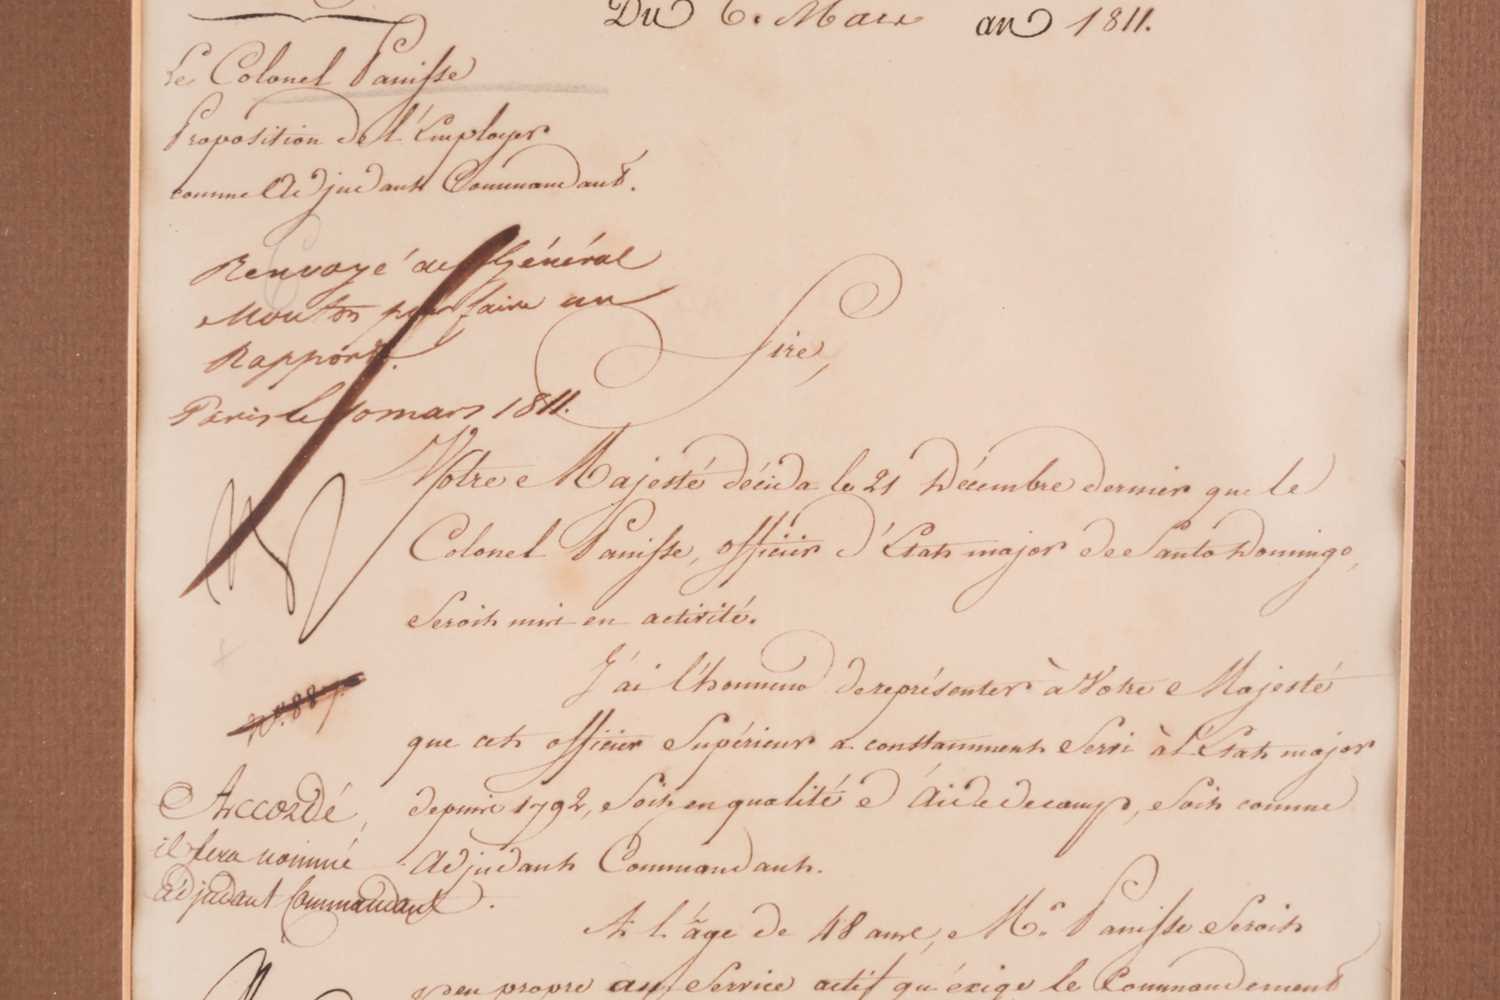 Du 6. Mars an 1811.
Le Colonel Panisse
Proposition de l'Employer
comme Adjudant Commandant.
Renvoyé au Général
Mouton pour faire un
Rapport.
Paris le 10 mars 1811.
Sire,
Votre Majesté décida le 21 Décembre dernier que le
Colonel Panisse, officier d'Etat major de Santo Domingo,
seroit mis en activité.
J'ai l'honneur de représenter à Votre Majesté
que cet officier Supérieur a constamment servi à l'Etat major
depuis 1792, soit en qualité d'Aide de camp, soit comme
Adjudant Commandant.
N°. 887
Accordé,
il sera nommé
adjudant Commandant.
A l'âge de 48 ans, Mr. Panisse seroit
peu propre au service actif qu'éxige le Commandement